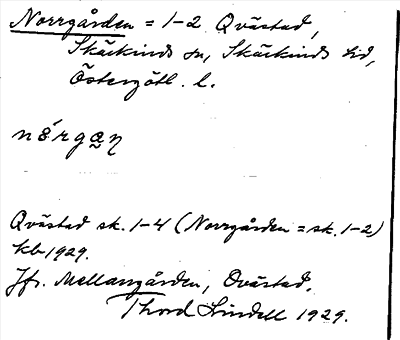 Norrgården = 1-2 Qvästad,
Skärkinds sn, Skärkinds hd,
Östergötl. l.
Qvästad sk. 1-4 (Norrgården = sk. 1-2)
kb 1929.
Jfr. Mellangården, Qvästad.
Thord Lindell 1929.